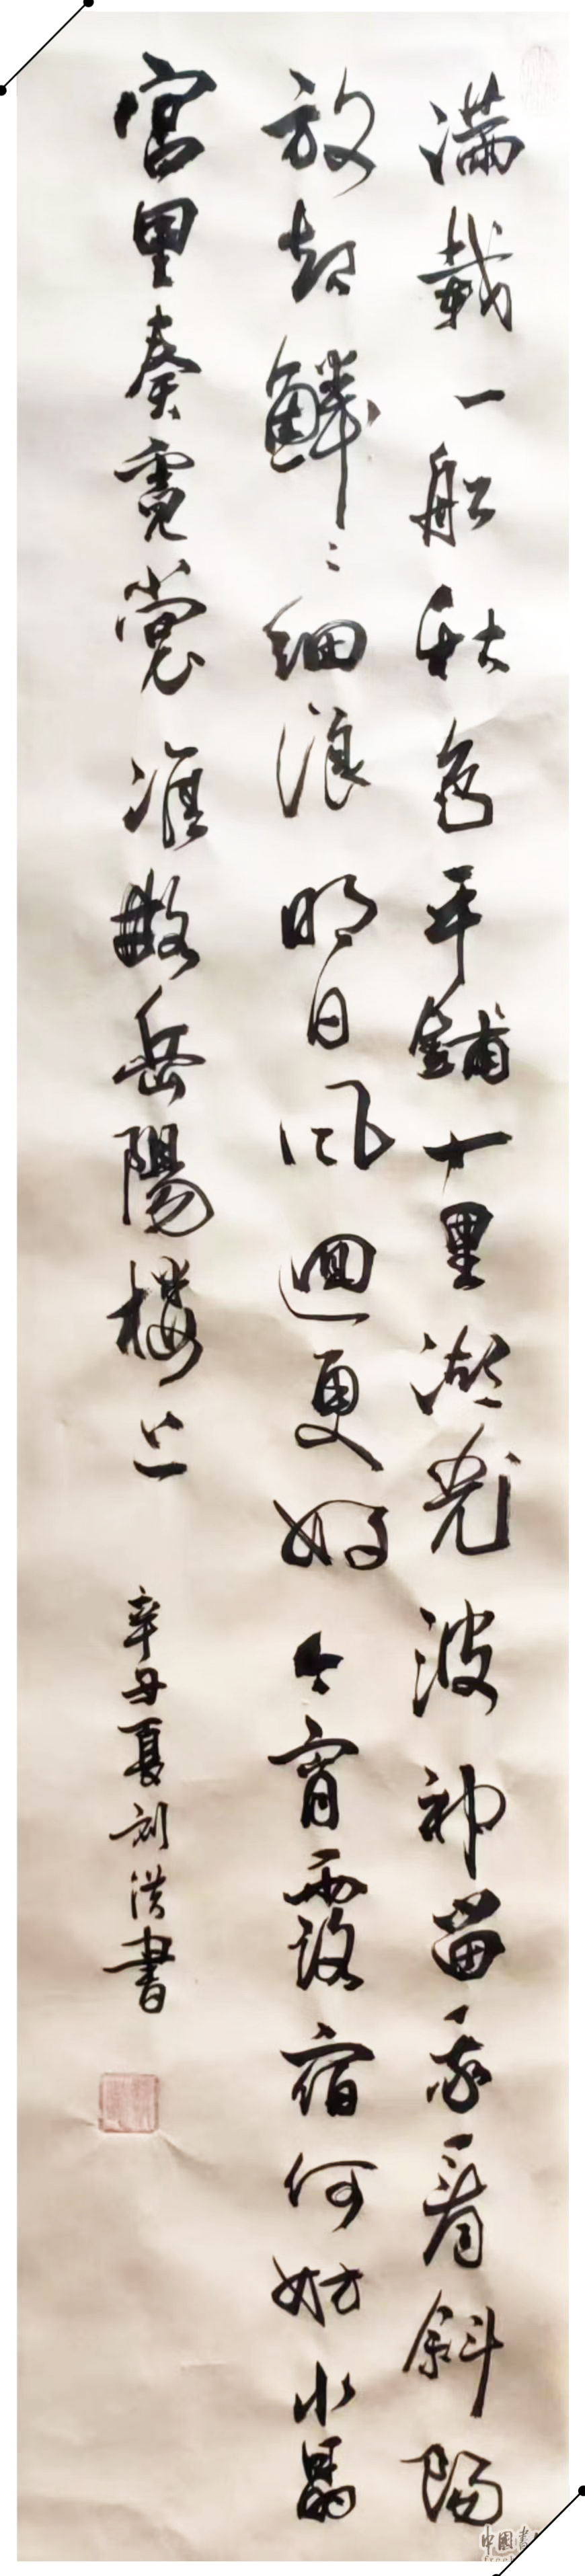 滿載一船秋色平鋪十里湖光波神留我看斜陽
放起鱗〻細浪明日風迴更好今宵露宿何妨水晶
宮里奏霓裳準岳陽樓上
辛丑夏刘洪書
中國書